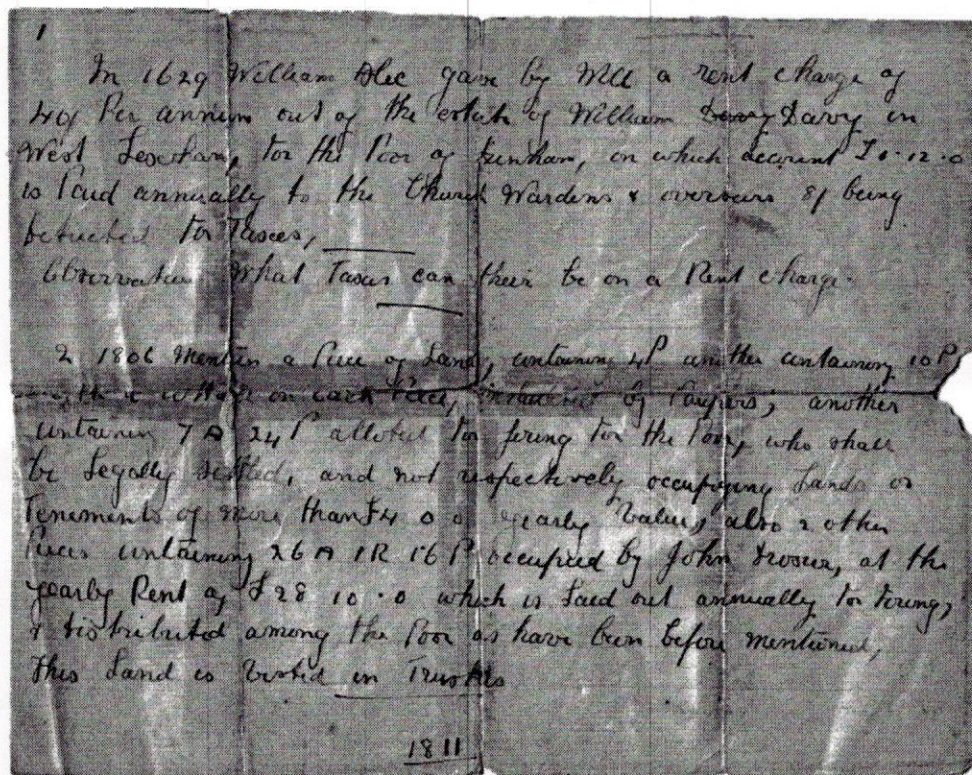 1
In 1629 William gave by Will a rent charge of
40s Per annum out of the estate of William Davy in
West Lexham, for the Poor of, on which account £1.12.0
is Paid annually to the Church Wardens & overseers 8s being
deducted for Taxes,
Observation What Taxes can their be on a Rent charge.
2 1806 Mention a Piece of Land, containing 4P another containing 10P
with a cottage on each Piece, by Paupers; another
containing 7A 24P alloted for firing for the Poor, who shall
be Legally settled, and not respectively occupying Lands or
Tenements of more than £4 0 0 yearly Value, also 2 other
Pieces containing 26A 1R 16P occupied by John, at the
yearly Rent of £28 10.0 which is Laid out annually for firing,
& distributed among the Poor as have been before mentioned,
This Land is Vested in Trustees
1811